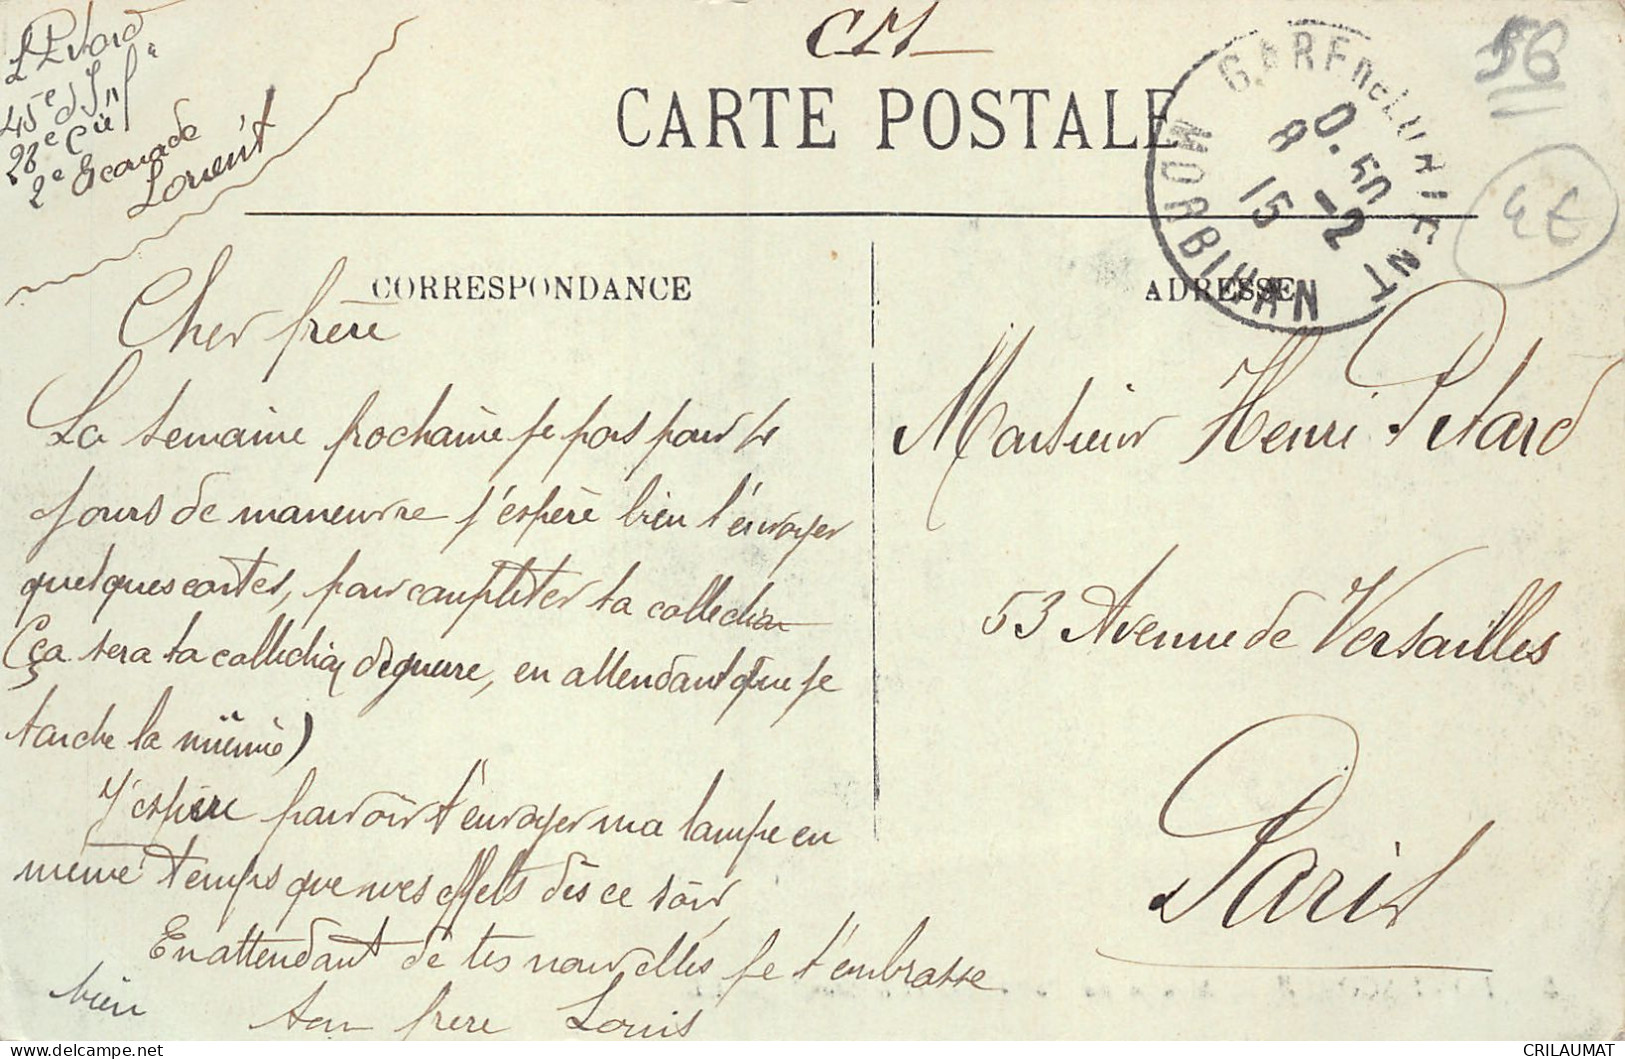 L Pitard
45e d'Inf
28e Cie
2e Escouade
Lorient
CM
CARTE POSTALE
GARE DE LORIENT
MORBIHAN
0.50
8 -2
15
56
4€
CORRESPONDANCE
ADRESSE
Cher frère
La semaine prochaine je pars pour 4
jours de maneuvre j'espère bien t'envoyer
quelques cartes, pour compléter ta collection
(ça sera ta collection de guerre, en attendant que je
tache la mienne)
J'espère pouvoir t'envoyer ma lampe en
même temps que mes effets dès ce soir,
En attendant de tes nouvelles je t'embrasse
bien
ton frère Louis
Monsieur Henri Pitard
53 Avenue de Versailles
Paris
CRILAUMAT